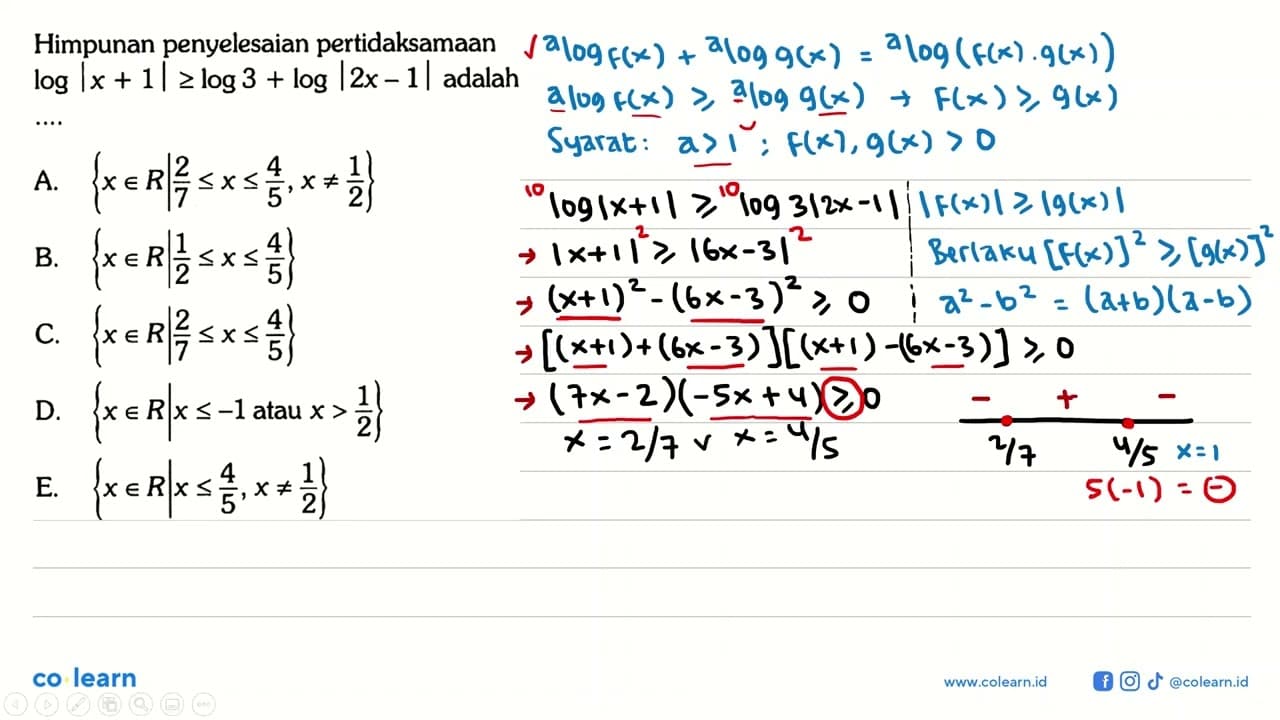 Himpunan penyelesaian pertidaksamaan
log |x + 1| ≥ log 3 + log |2x – 1| adalah
....
A. {x ∈ R| 2/7 ≤ x ≤ 4/5, x ≠ 1/2}
B. {x ∈ R| 1/2 ≤ x ≤ 4/5}
C. {x ∈ R| 2/7 ≤ x ≤ 4/5}
D. {x ∈ R| x ≤ –1 atau x > 1/2}
E. {x ∈ R| x ≤ 4/5, x ≠ 1/2}
√ ᵃlog f(x) + ᵃlog g(x) = ᵃlog (f(x) . g(x))
ᵃlog f(x) ≥ ᵃlog g(x) → f(x) ≥ g(x)
Syarat: a > 1 ; f(x), g(x) > 0
¹⁰log |x+1| ≥ ¹⁰log 3|2x-1|
→ |x+1|² ≥ |6x-3|²
→ (x+1)² - (6x-3)² ≥ 0
→ [(x+1)+(6x-3)][(x+1)-(6x-3)] ≥ 0
→ (7x-2)(-5x+4) ≥ 0
x = 2/7 v x = 4/5
|f(x)| ≥ |g(x)|
Berlaku [f(x)]² ≥ [g(x)]²
a² - b² = (a+b)(a-b)
- + -
2/7 4/5 x=1
5(-1) = -
co learn
www.colearn.id @colearn.id